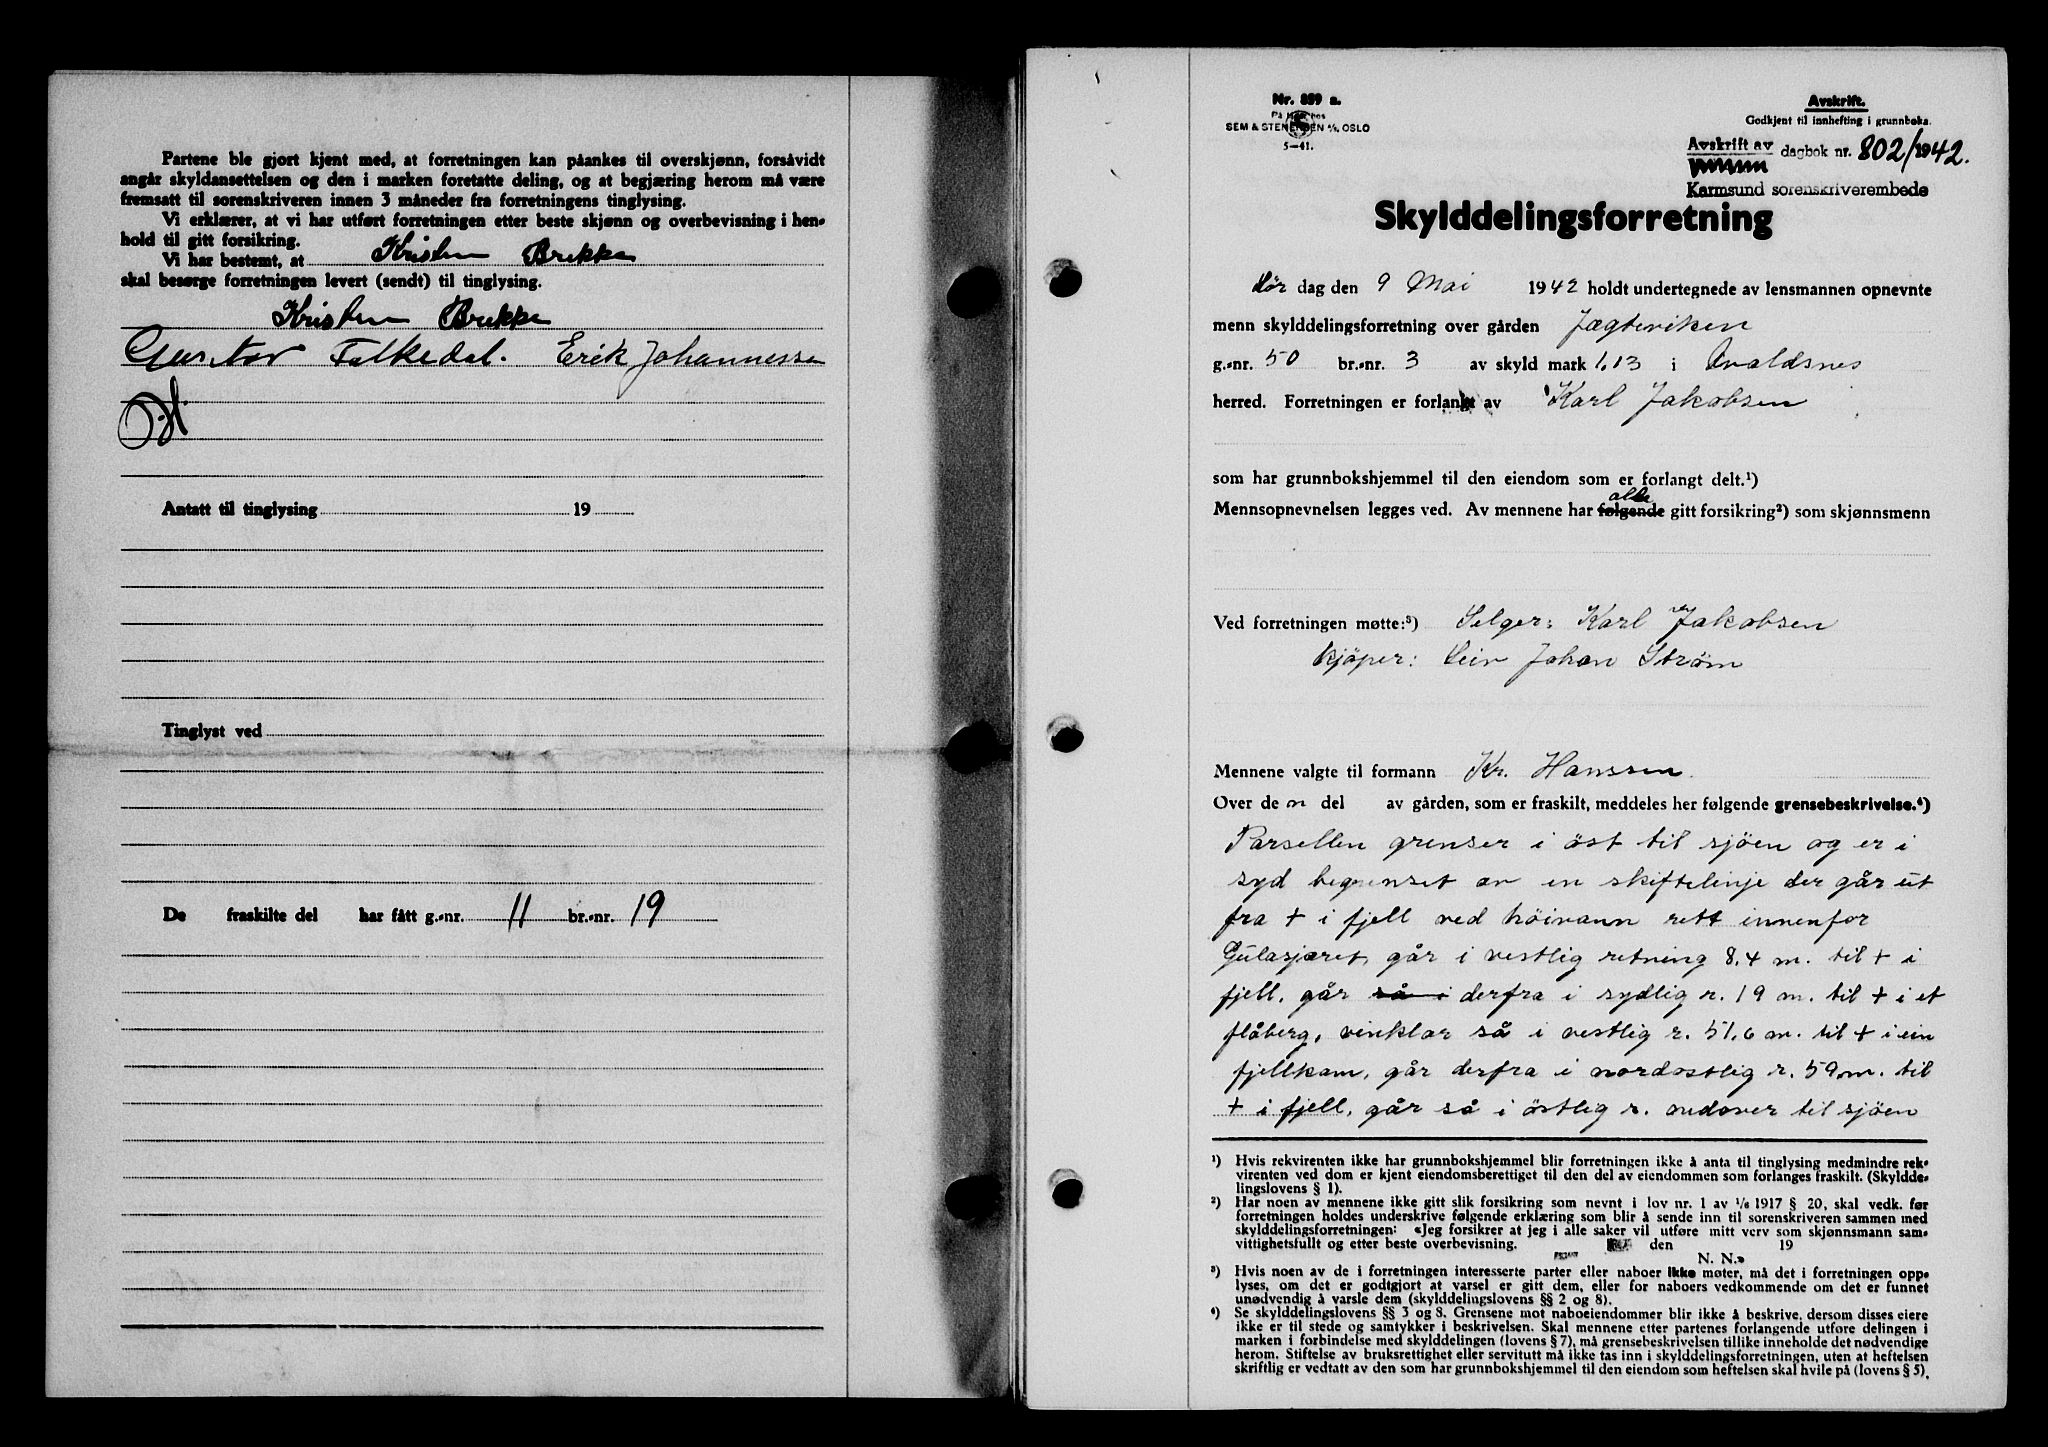 Partene ble gjort kjent med, at forretningen kan påankes til overskjønn, forsåvidt
angår skyldansettelsen og den i marken foretatte deling, og at begjæring herom må være
fremsatt til sorenskriveren innen 3 måneder fra forretningens tinglysing.
Vi erklærer, at vi har utført forretningen etter beste skjønn og overbevisning i hen-
hold til gitt forsikring.
Vi har bestemt, at Kristen Brekke
skal besørge forretningen levert (sendt) til tinglysing.
Kristen Brekke
Gustav Falkedal. Erik Johannessen
Antatt til tinglysing 19
Tinglyst ved
De fraskilte del har fått g.-nr. 11 br.-nr. 19
Nr. 859 a.
På lager hos
SEM & STENERSEN A/S, OSLO
5-41.
Avskrift.
Godkjent til innhefting i grunnboka.
Avskrift av dagbok nr. 802/1942.
Karmsund sorenskriverembede
Skylddelingsforretning
Lør dag den 9 Mai 1942 holdt undertegnede av lensmannen opnevnte
menn skylddelingsforretning over gården Jægteviken
g.-nr. 50 br.-nr. 3 av skyld mark 1,13 i Avaldsnes
herred. Forretningen er forlangt av Karl Jakobsen
som har grunnbokshjemmel til den eiendom som er forlangt delt.¹)
alle
Mennsopnevnelsen legges ved. Av mennene har følgende gitt forsikring²) som skjønnsmenn
Ved forretningen møtte:³) Selger: Karl Jakobsen
kjöper: Leiv Johan Strøm
Mennene valgte til formann Kr. Hanssen.
Over den del av gården, som er fraskilt, meddeles her følgende grensebeskrivelse.⁴)
Parsellen grenser i öst til sjöen og er i
syd begrenset av en skiftelinje der går ut
fra + i fjell ved höivann rett innenfor
Gulasjæret, går i vestlig retning 8,4 m. til + i
fjell, går så i derfra i sydlig r. 19 m. til + i et
flåberg, vinklar så i vestlig r. 51,6 m. til + i ein
fjellkam, går derfra i nordostlig r. 59 m. til
+ i fjell, går så i östlig r. nedover til sjöen
¹) Hvis rekvirenten ikke har grunnbokshjemmel blir forretningen ikke å anta til tinglysing medmindre rek-
virenten ved dom er kjent eiendomsberettiget til den del av eiendommen som forlanges fraskilt. (Skyldde-
lingslovens § 1).
²) Har noen av mennene ikke gitt slik forsikring som nevnt i lov nr. 1 av 1/6 1917 § 20, skal vedk. før
forretningen holdes underskrive følgende erklæring som blir å sende inn til sorenskriveren sammen med
skylddelingsforretningen: «Jeg forsikrer at jeg i alle saker vil utføre mitt verv som skjønnsmann sam-
vittighetsfullt og etter beste overbevisning. den 19
N. N.»
³) Hvis noen av de i forretningen interesserte parter eller naboer ikke møter, må det i forretningen opp-
lyses, om det er godtgjort at varsel er gitt dem, eller for naboers vedkommende om det er funnet
unødvendig å varsle dem (skylddelingslovens §§ 2 og 8).
⁴) Se skylddelingslovens §§ 3 og 8. Grensene mot naboeiendommer blir ikke å beskrive, dersom disses eiere
ikke er til stede og samtykker i beskrivelsen. Skal mennene etter partenes forlangende utføre delingen i
marken i forbindelse med skylddelingen (lovens § 7), må grensebeskrivelsen tillike inneholde det nødvendige
herom. Stiftelse av bruksrettighet eller servitutt må ikke tas inn i skylddelingsforretningen, uten at heftelsen
skriftlig er vedtatt av den som har grunnbokshjemmel til den eiendom som heftelsen skal hvile på (lovens § 5).